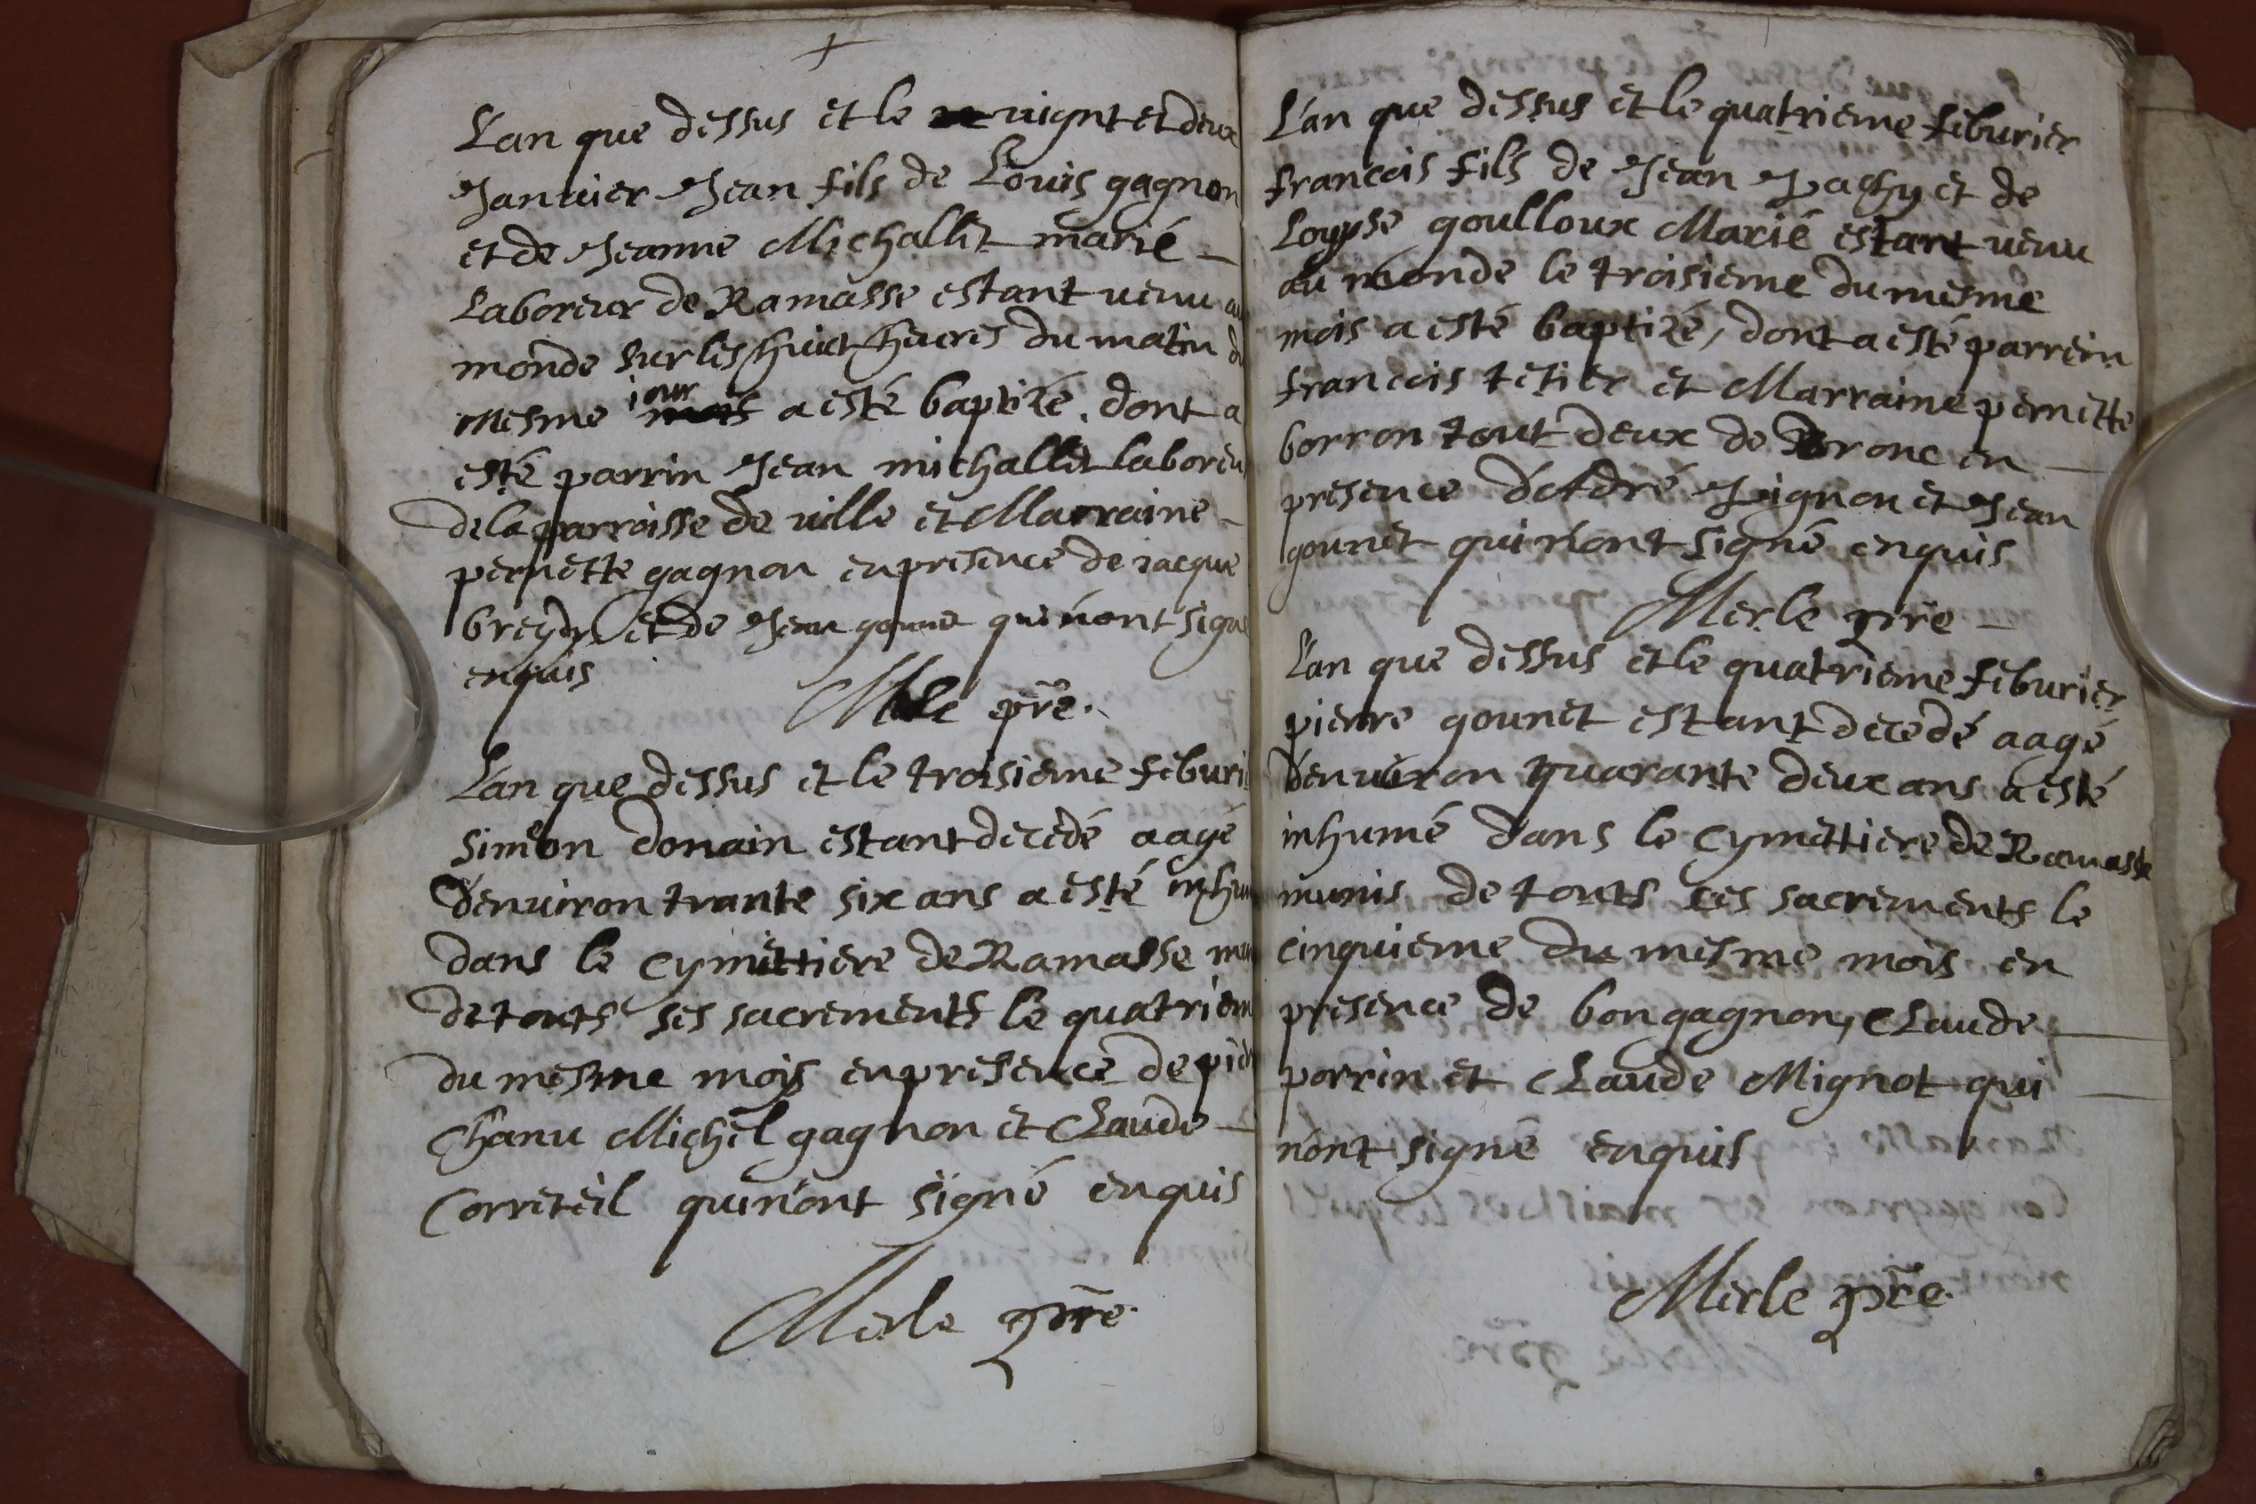 L'an que dessus et le vignt et deux
Janvier Jean fils de Louis gagnon
et de Jeanne Michallet marié
Laboreur de Ramasse estant venu au
monde sur les huict heures du matin du
mesme jour a esté baptizé, dont a
esté parrin Jean michallet laboreu
de la parroisse de ville et Marraine
pernette gagnon en presence de jacque
breydon et de Jean gounet qui n'ont signé
enquis
Merle pre.
L'an que dessus et le troisieme feburi
simeon donain estant decedé aagé
d'environ trante six ans a esté inhum
dans le cymettiere de Ramasse mun
de touts ses sacrements le quatriem
du mesme mois en presence de pier
Chanu Michel gagnon et Claude
Correteil qui n'ont signé enquis
Merle pre.
L'an que dessus et le quatrieme feburier
francois fils de Jean Pachy et de
Louyse goulloux Marié estant venu
au monde le troisieme du mesme
mois a esté baptizé, dont a esté parrein
francois tetier et Marraine pernette
borron tout deux de Drone en
presence d'Adré Pignon et Jean
gounet qui n'ont signé enquis
Merle pre
L'an que dessus et le quatrieme feburier
pierre gounet estant decedé aagé
d'environ quarante deux ans a esté
inhumé dans le cymettiere de Ramasse
munis de touts ces sacrements le
cinquieme du mesme mois en
presence de bon gagnon, Claude
porrin et Claude Mignot qui
n'ont signé enquis
Merle pre.